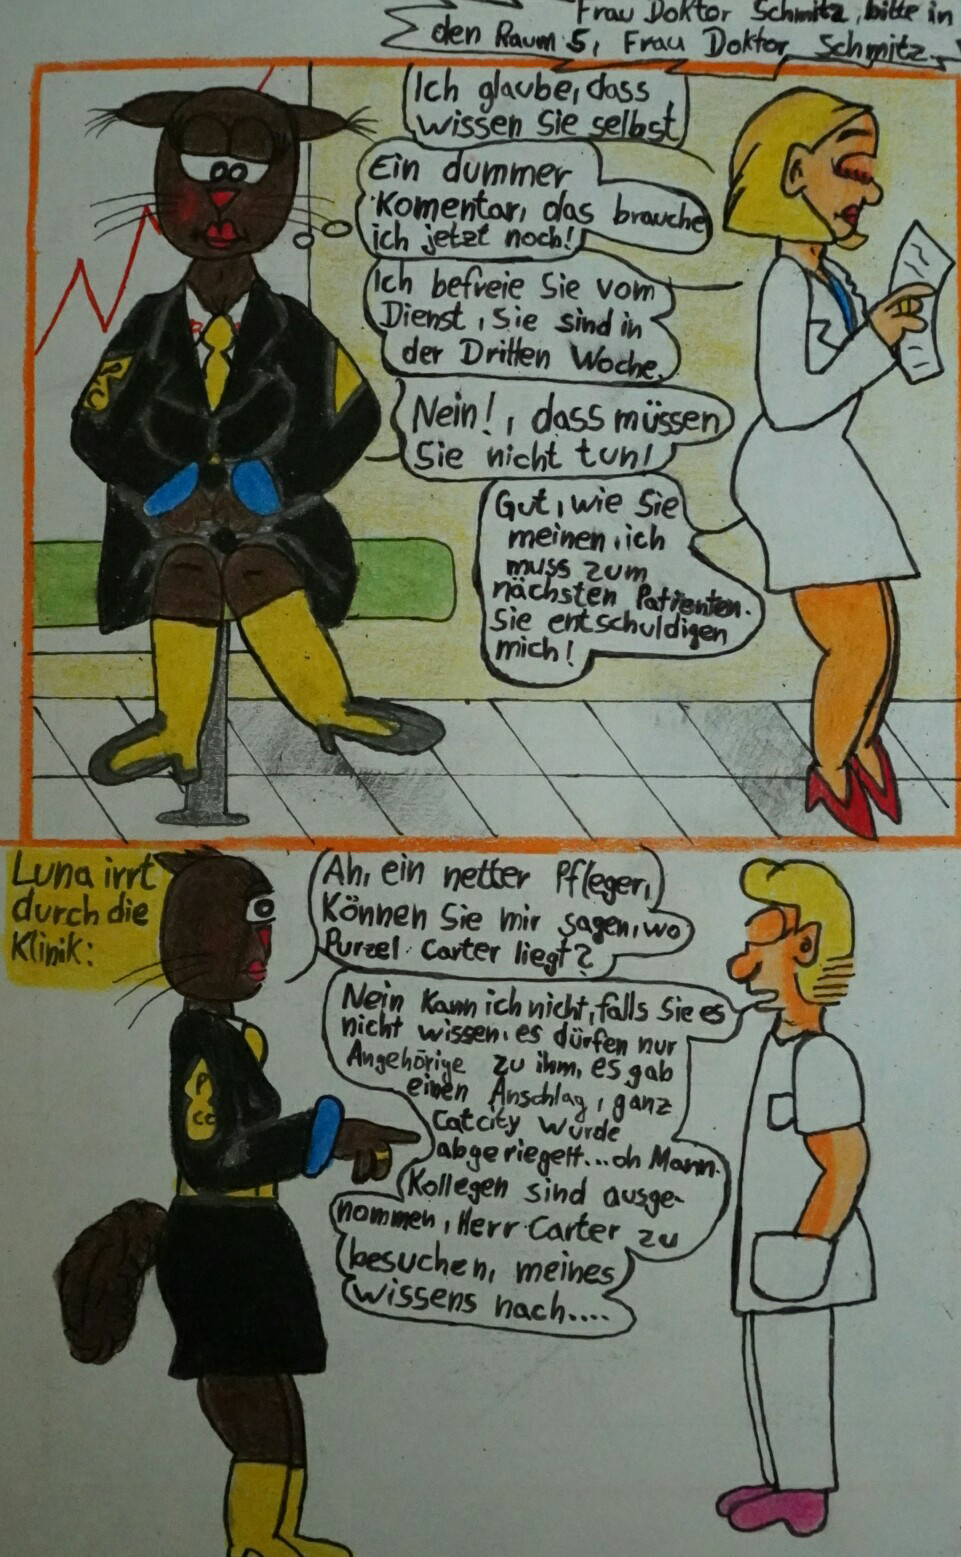 Frau Doktor Schmitz, bitte in
den Raum 5, Frau Doktor Schmitz.
Ich glaube, dass
wissen Sie selbst
Ein dummer
Komentar, das brauche
ich jetzt noch!
Ich befreie Sie vom
Dienst, Sie sind in
der Dritten Woche.
Nein!, dass müssen
Sie nicht tun!
Gut, wie Sie
meinen, ich
muss zum
nächsten Patienten.
Sie entschuldigen
mich!
Luna irrt
durch die
Klinik:
Ah, ein netter Pfleger,
Können Sie mir sagen, wo
Purzel Carter liegt?
Nein kann ich nicht, falls Sie es
nicht wissen, es dürfen nur
Angehörige zu ihm, es gab
einen Anschlag, ganz
Catcity wurde
abgeriegelt...oh Mann.
Kollegen sind ausge-
nommen, Herr Carter zu
besuchen, meines
wissens nach....
P
CC